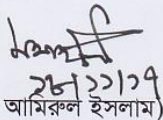 ২৮/১১/১৭
আমিরুল ইসলাম)